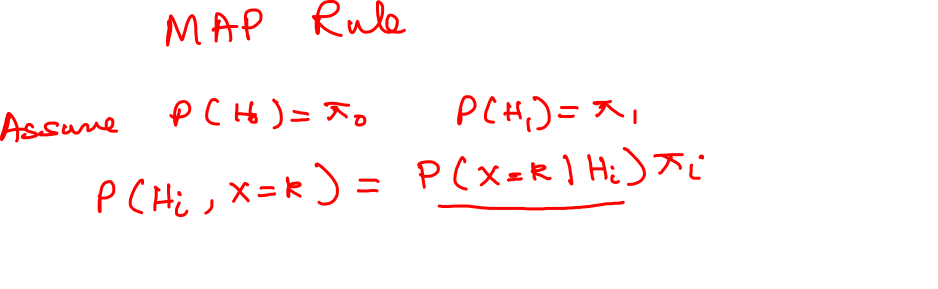 MAP Rule
Assume P(H₀) = π₀ P(H₁) = π₁
P(Hᵢ, X=k) = P(X=k | Hᵢ) πᵢ